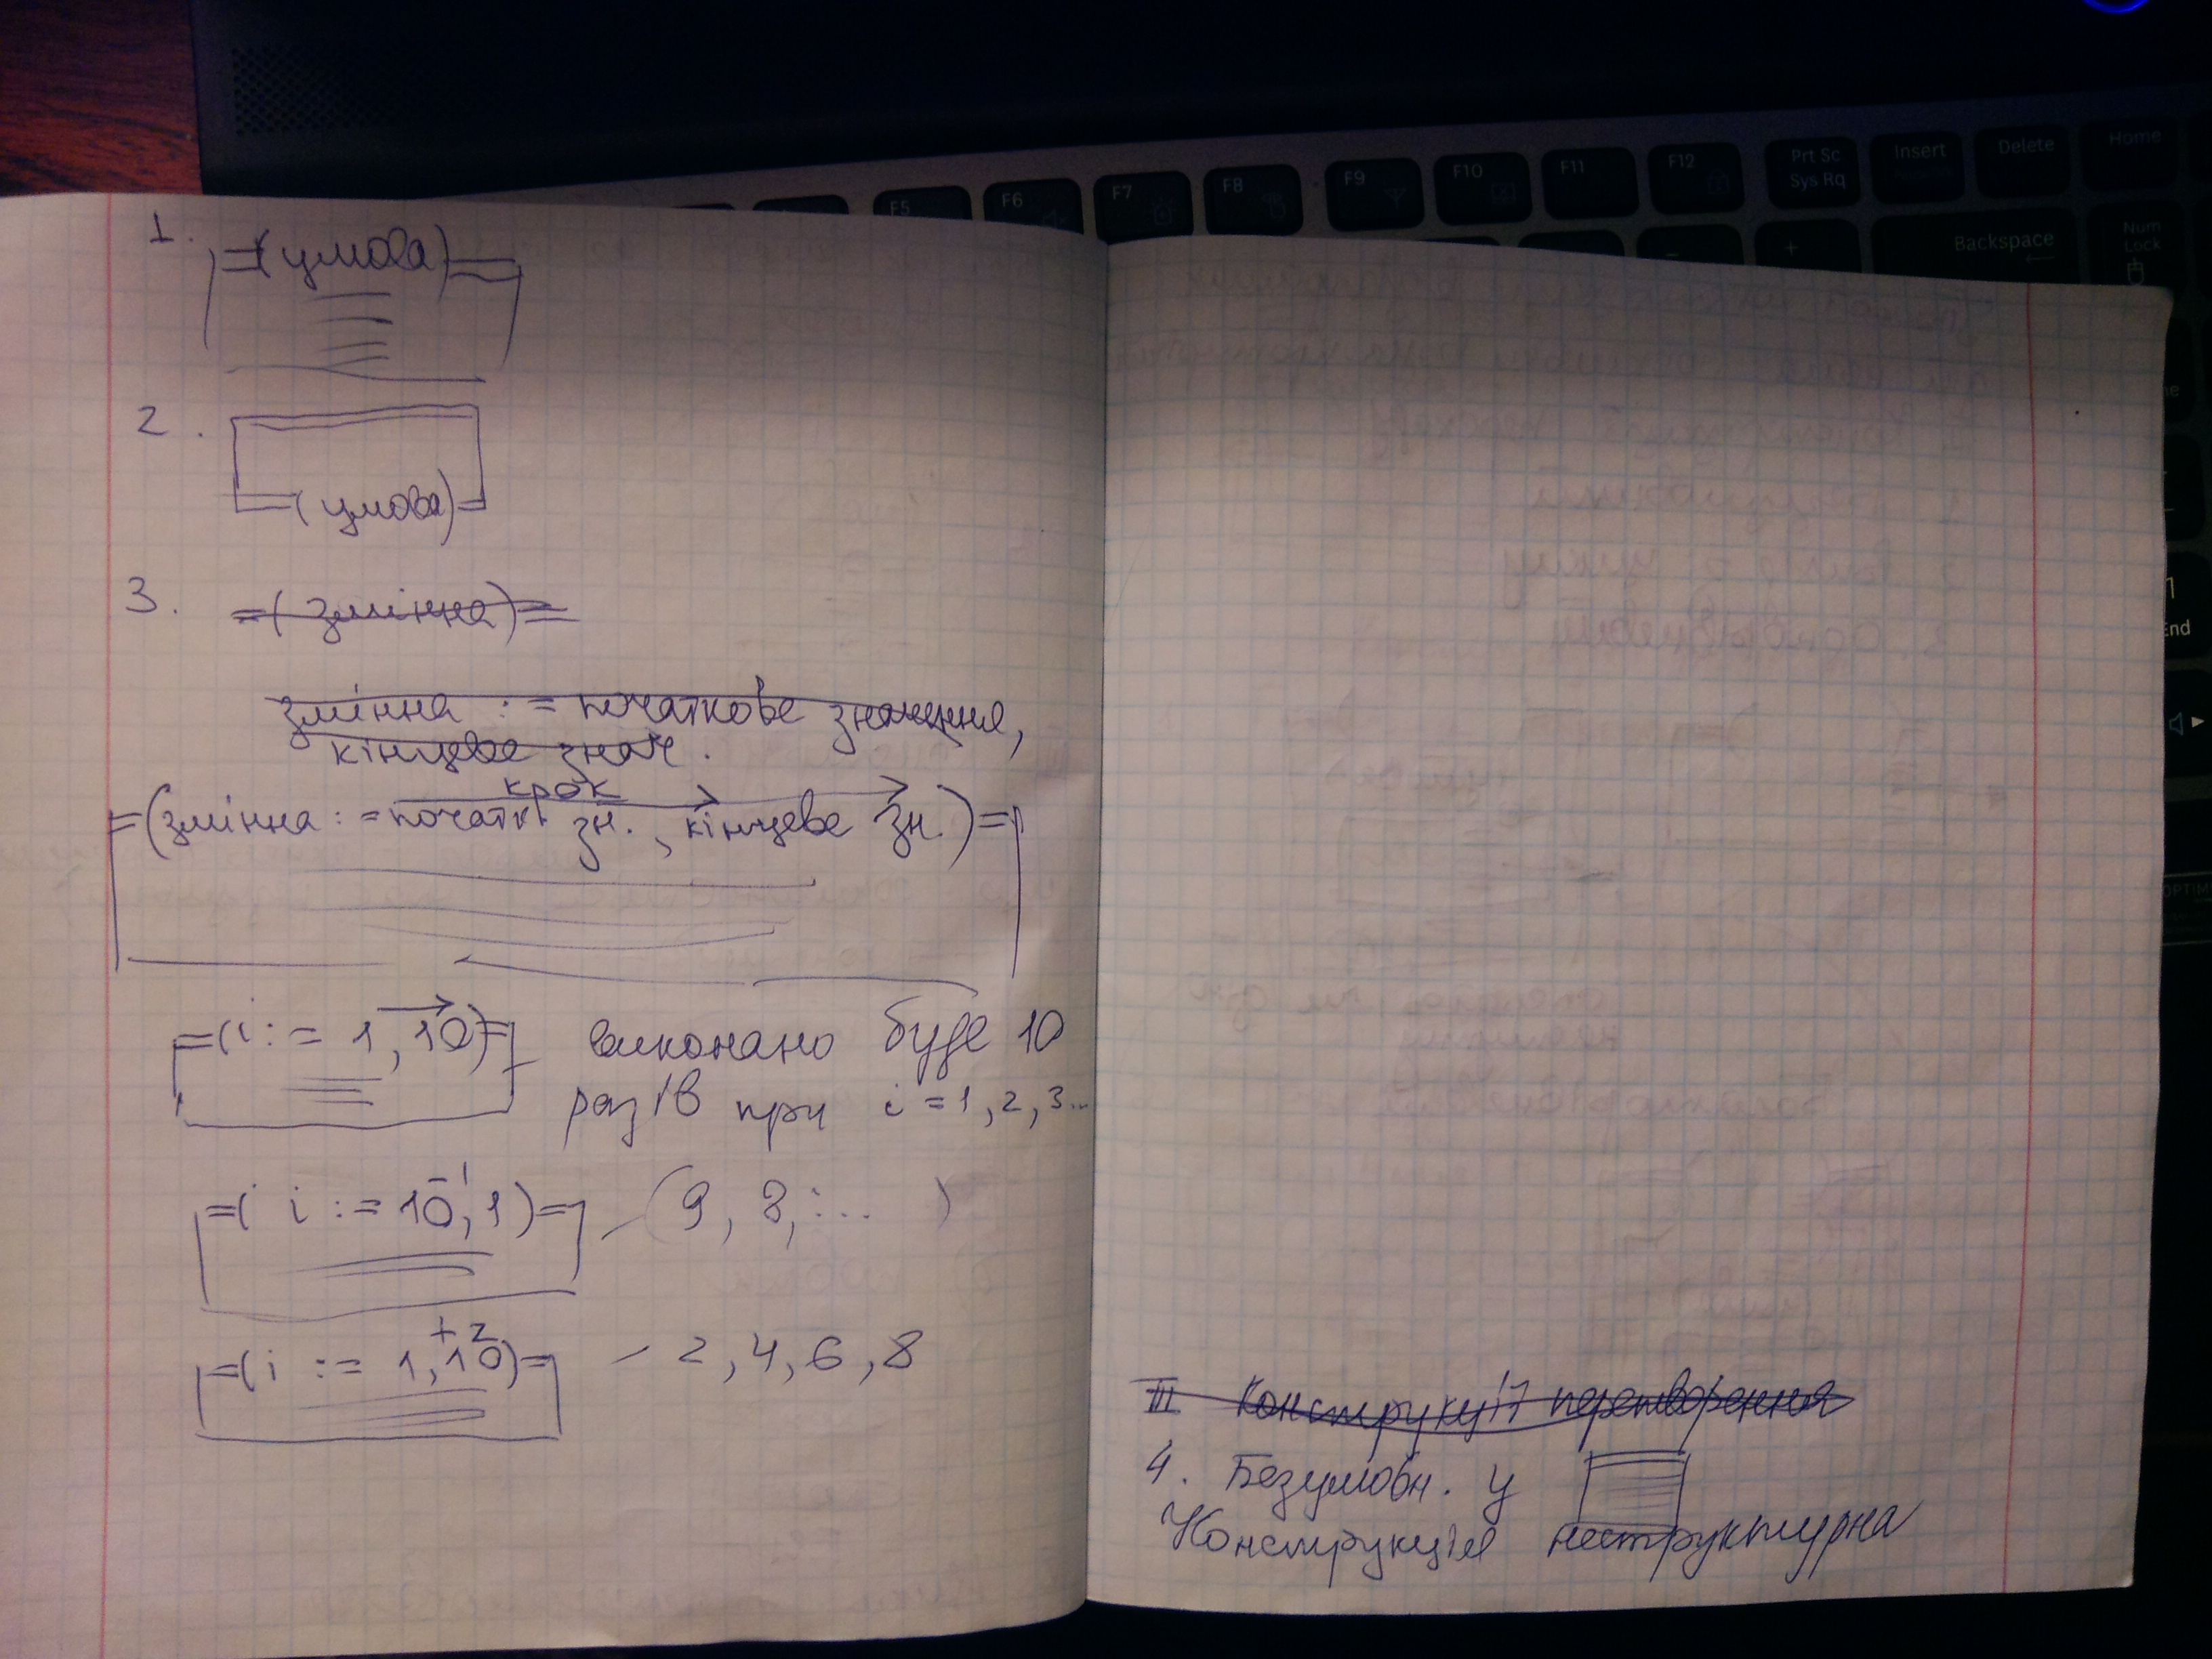 F5 F6 F7 F8 F9 F10 F11 F12 Prt Sc Sys Rq Insert Delete Home
Backspace Num Lock
End
1. =(умова)=
2.
=(умова)=
3. =( змінна)=
змінна := початкове значення,
кінцеве знач.
крок
=(змінна := початк зн., кінцеве зн.)=
=(i := 1, 10)= виконано буде 10
разів при i = 1, 2, 3...
-1
=( i := 10, 1)= - (9, 8, ... )
+2
=(i := 1, 10)= - 2, 4, 6, 8
III Конструкції перетворення
4. Безумовн. у
Конструкція неструктурна